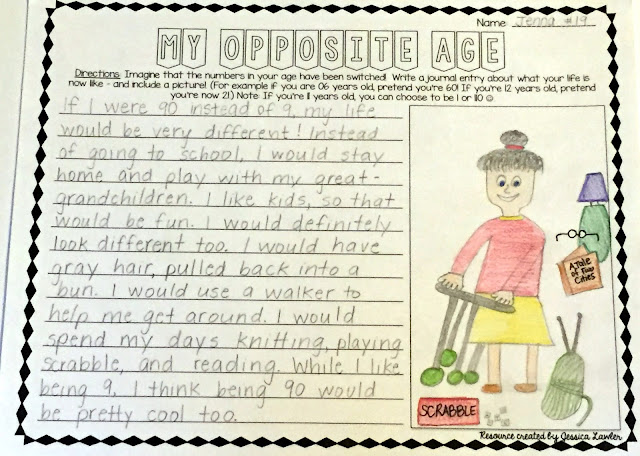 Name: Jenna #19
MY OPPOSITE AGE
Directions: Imagine that the numbers in your age have been switched! Write a journal entry about what your life is
now like - and include a picture! (For example if you are 06 years old, pretend you're 60! If you're 12 years old, pretend
you're now 21.) Note: If you're 11 years old, you can choose to be 1 or 110 ☺
If I were 90 instead of 9, my life
would be very different! Instead
of going to school, I would stay
home and play with my great-
grandchildren. I like kids, so that
would be fun. I would definitely
look different too. I would have
gray hair, pulled back into a
bun. I would use a walker to
help me get around. I would
spend my days knitting, playing
scrabble, and reading. While I like
being 9, I think being 90 would
be pretty cool too.
A Tale
of Two
Cities
SCRABBLE
Resource created by Jessica Lawler